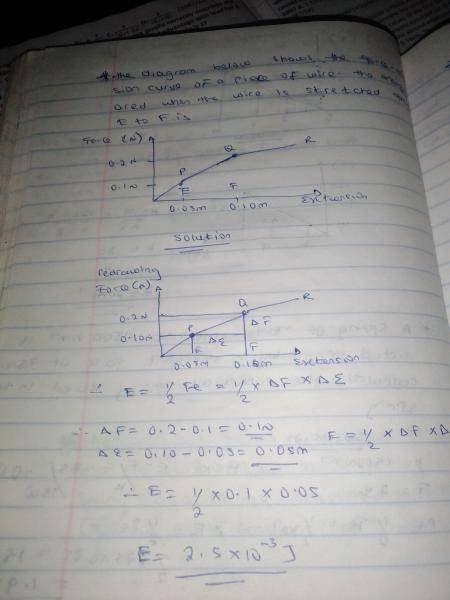 the diagram below shows the force
sion curve of a piece of wire. the
ored when the wire is stretched
E to F is
Force (N)
0.2N
0.1N
P
Q
R
E
F
0.05m
0.10m
Extension
Solution
redrawing
Force (N)
0.2N
0.10N
P
Q
R
ΔF
Δε
E
F
0.05m
0.10m
Extension
∴ E = 1/2 Fe = 1/2 × ΔF × Δε
∴ ΔF = 0.2 - 0.1 = 0.1N
Δε = 0.10 - 0.05 = 0.05m
E = 1/2 × ΔF × Δ
∴ E = 1/2 × 0.1 × 0.05
E = 2.5 × 10⁻³ J